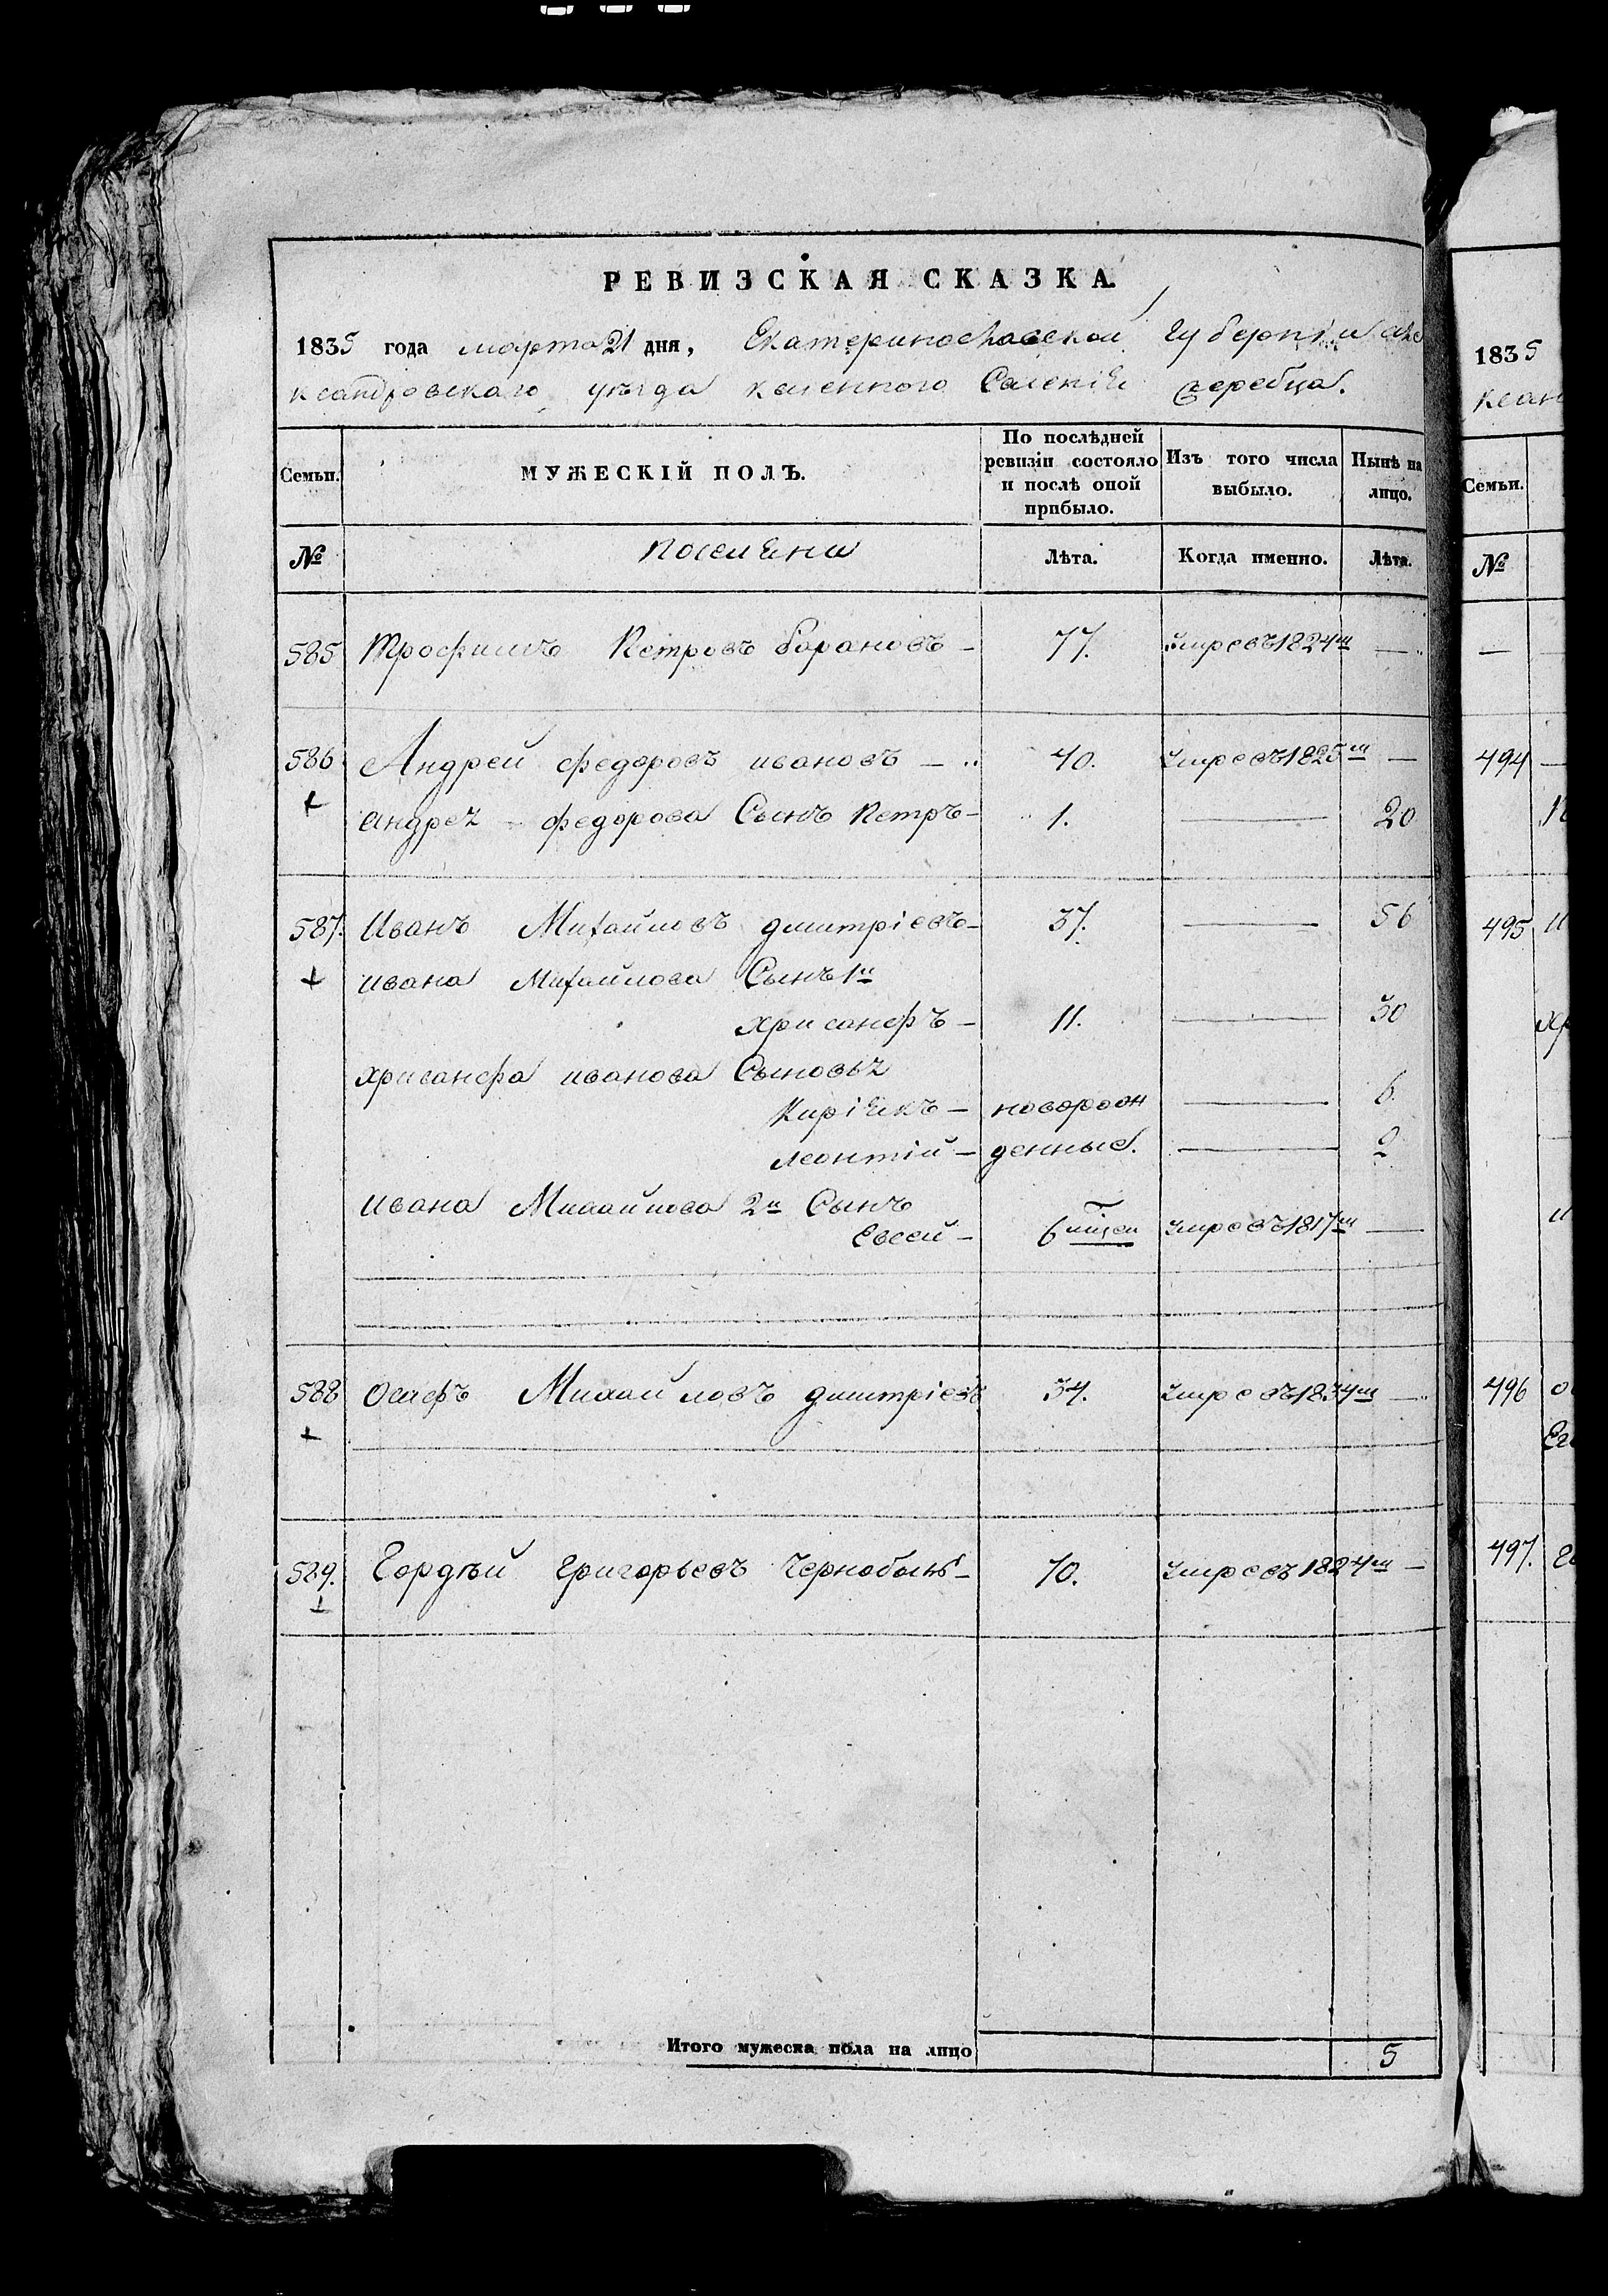 РЕВИЗСКАЯ СКАЗКА.
1835 года марта 21 дня, Екатеринославской Губерніи Але
ксандровскаго уѣзда казенного Селенія Жеребца.
Семьи. МУЖЕСКІЙ ПОЛЪ. По послѣдней ревизіи состояло и послѣ оной прибыло. Изъ того числа выбыло. Нынѣ на лицо.
№ Поселяни Лѣта. Когда именно. Лѣта.
585 Трофимъ Петровъ барановъ — 77. умре въ 1824м —
586 Андрей федоровъ ивановъ — 40. умре въ 1825м —
+ андрея федорова Сынъ Петръ — 1. — 20
587. Иванъ Михайловъ дмитріевъ — 37. — 56
+ ивана Михайлова Сынъ 1й
хрисанфъ — 11. — 30
хрисанфа иванова Сыновья
Киріякъ — новорож — 6.
леонтій — денные. — 2
ивана Михайлова 2й Сынъ
Евсей — 6 умре въ 1817м —
588 Осифъ Михайловъ дмитріевъ 34. умре въ 1834м —
+
589. Гордѣй григорьевъ — 70. умре въ 1824м —
+
Итого мужеска пола на лицо 5
1835
ксан
Семьи.
№
—
494 —
495 и
хр
и
496
497.